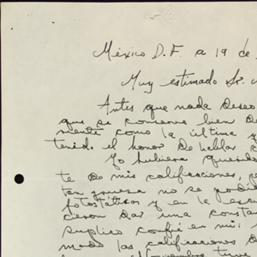 México D. F. a 19 de
Muy estimado Sr.
Antes que nada deseo
que se conserve bien de
mente como la última v
tenido el honor de hablar c
Yo hubiera querido
te de mis calificaciones,
tan gruesa no se podía
fotostáticas y en la esc
dieron dar una constan
suplico confíe en mí,
mado las calificaciones d